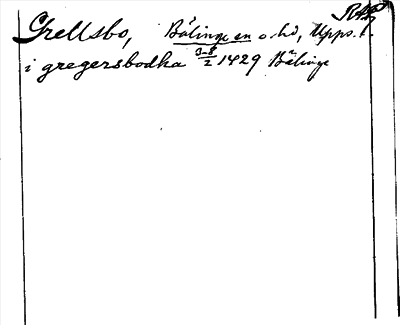 RAP
Grellsbo, Bälinge sn o hd, Upps. l.
i gregersbodha 3-8/2 1429 Bälinge